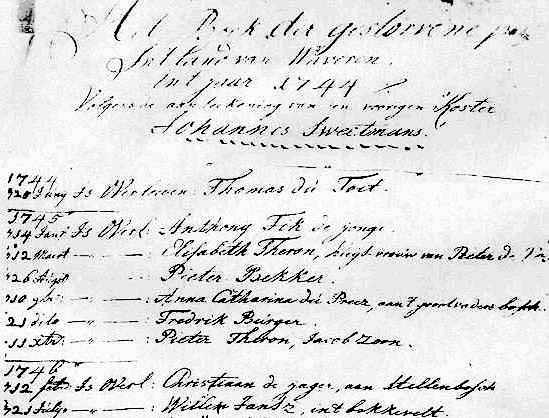 Het Boek der gestorvene
Int land van Waveren.
Int jaar 1744
Volgens de aanteekening van en voorigen Koster
Johannes Sweetmans.
1744
20 Juny Is Overl: Thomas du Toit.
1745
14 Janr Is Overl: Anthony Fik de jonge.
12 Maart — " — : Elisabeth Theron, huysvrouw van Pieter de
26 Augst — " — : Pieter Bekker.
10 9br: — " — : Anna Catharina du Preez, aan 't groot vaders bosch.
21 dito — " — : Fredrik Burger
11 xbr: — " — : Pieter Theron, Jacob Zoon.
1746
12 febr: Is Overl: Christiaan de jager, aan Stellenbosch
21 July — " — : Willem Jansz, int bokkevelt.